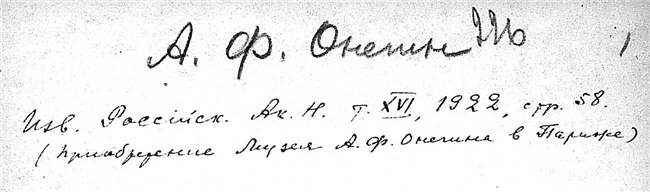 А. Ф. Онегин
Изв. Россійск. Ак. Н. т. XVI, 1922, стр. 58.
(Приобретение Музея А. Ф. Онегина в Париже)